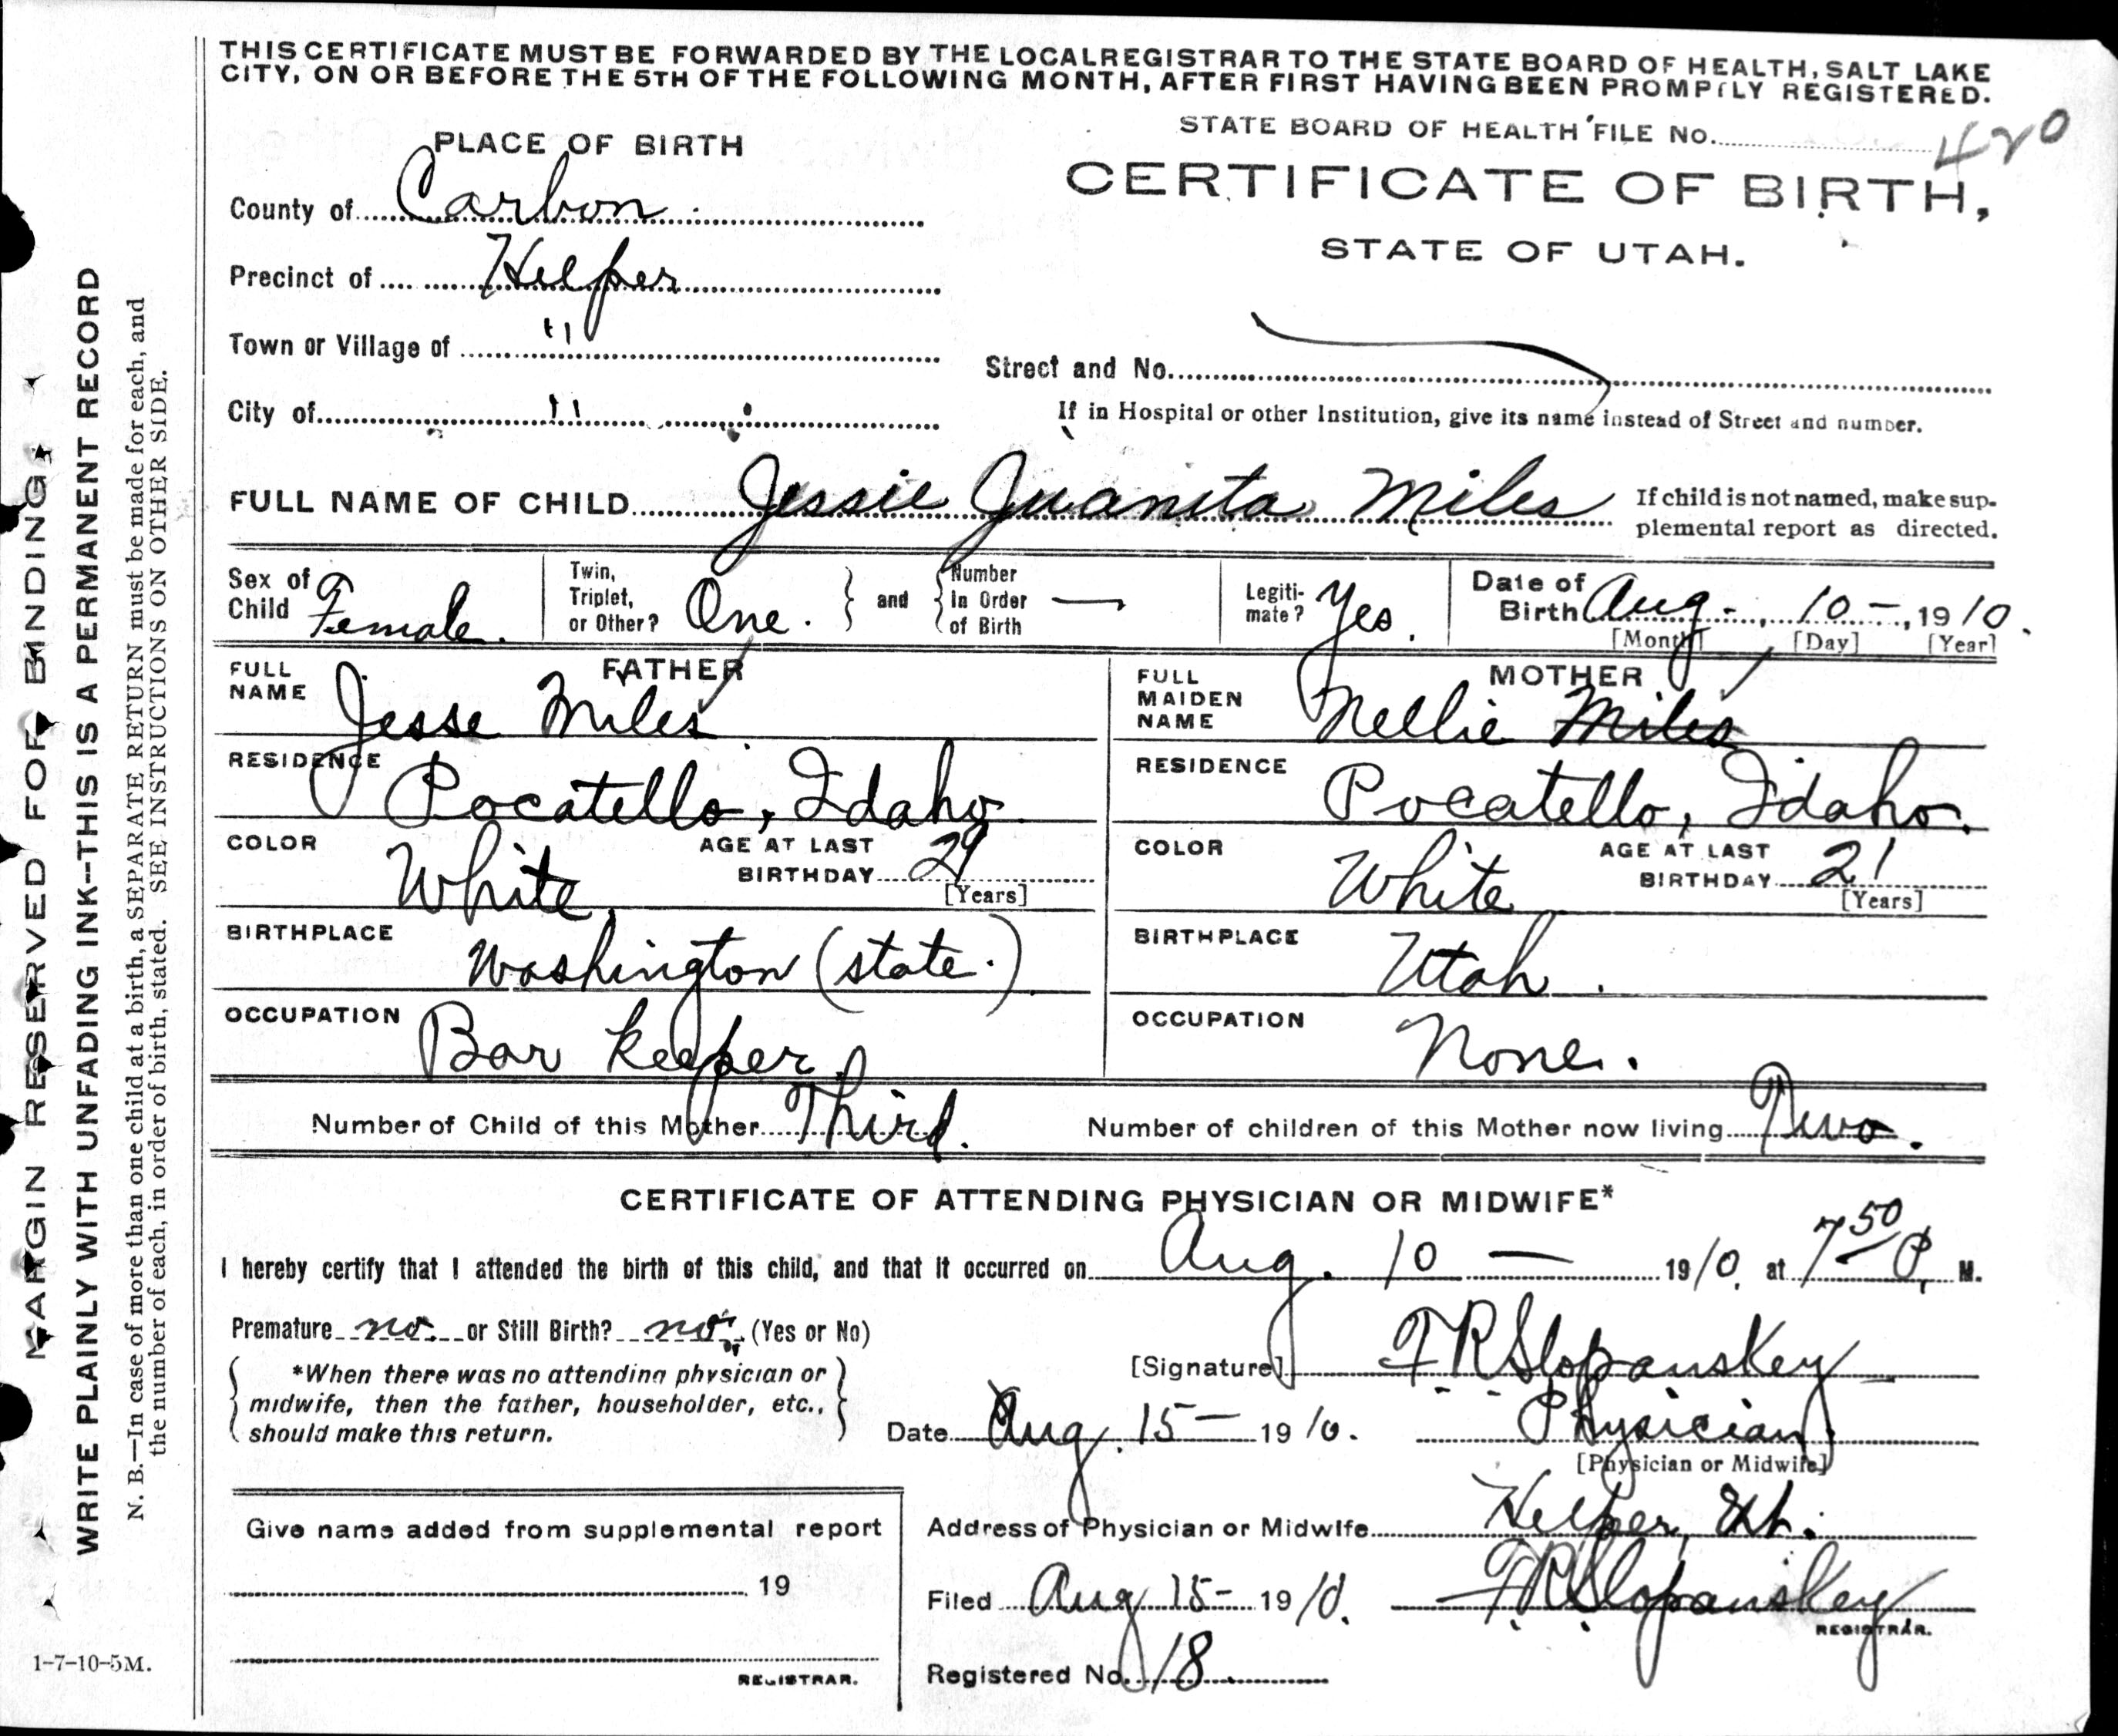 THIS CERTIFICATE MUST BE FORWARDED BY THE LOCAL REGISTRAR TO THE STATE BOARD OF HEALTH, SALT LAKE
CITY, ON OR BEFORE THE 5TH OF THE FOLLOWING MONTH, AFTER FIRST HAVING BEEN PROMPTLY REGISTERED.
STATE BOARD OF HEALTH FILE No. 420
PLACE OF BIRTH
CERTIFICATE OF BIRTH,
STATE OF UTAH.
County of Carbon
Precinct of Helper
Town or Village of "
Street and No.
City of "
If in Hospital or other Institution, give its name instead of Street and number.
FULL NAME OF CHILD Jessie Juanita Miles
If child is not named, make sup-
plemental report as directed.
Sex of Child Female.
Twin, Triplet, or Other? One. and Number in Order of Birth —
Legiti-mate? Yes.
Date of Birth Aug. 10 -, 1910.
[Month] [Day] [Year]
FATHER
FULL NAME Jesse Miles
RESIDENCE Pocatello, Idaho.
COLOR White
AGE AT LAST BIRTHDAY 29
[Years]
BIRTHPLACE Washington (state.)
OCCUPATION Bar keeper.
MOTHER
FULL MAIDEN NAME Nellie Miles
RESIDENCE Pocatello, Idaho.
COLOR White
AGE AT LAST BIRTHDAY 21
[Years]
BIRTHPLACE Utah.
OCCUPATION None.
Number of Child of this Mother Third.
Number of children of this Mother now living Two.
CERTIFICATE OF ATTENDING PHYSICIAN OR MIDWIFE*
I hereby certify that I attended the birth of this child, and that it occurred on Aug. 10 — 1910, at 7 50 P. M.
Premature no. or Still Birth? no. (Yes or No)
*When there was no attending physician or
midwife, then the father, householder, etc.,
should make this return.
[Signature] F R Slopanskey
Date Aug. 15 — 1910. Physician
[Physician or Midwife]
Address of Physician or Midwife Helper, Ut.
Filed Aug 15 - 1910. F R Slopanskey
REGISTRAR.
Registered No. 18
Give name added from supplemental report
19
REGISTRAR.
MARGIN RESERVED FOR BINDING
WRITE PLAINLY WITH UNFADING INK--THIS IS A PERMANENT RECORD
N. B.—In case of more than one child at a birth, a SEPARATE RETURN must be made for each, and
the number of each, in order of birth, stated. SEE INSTRUCTIONS ON OTHER SIDE.
1-7-10-5M.